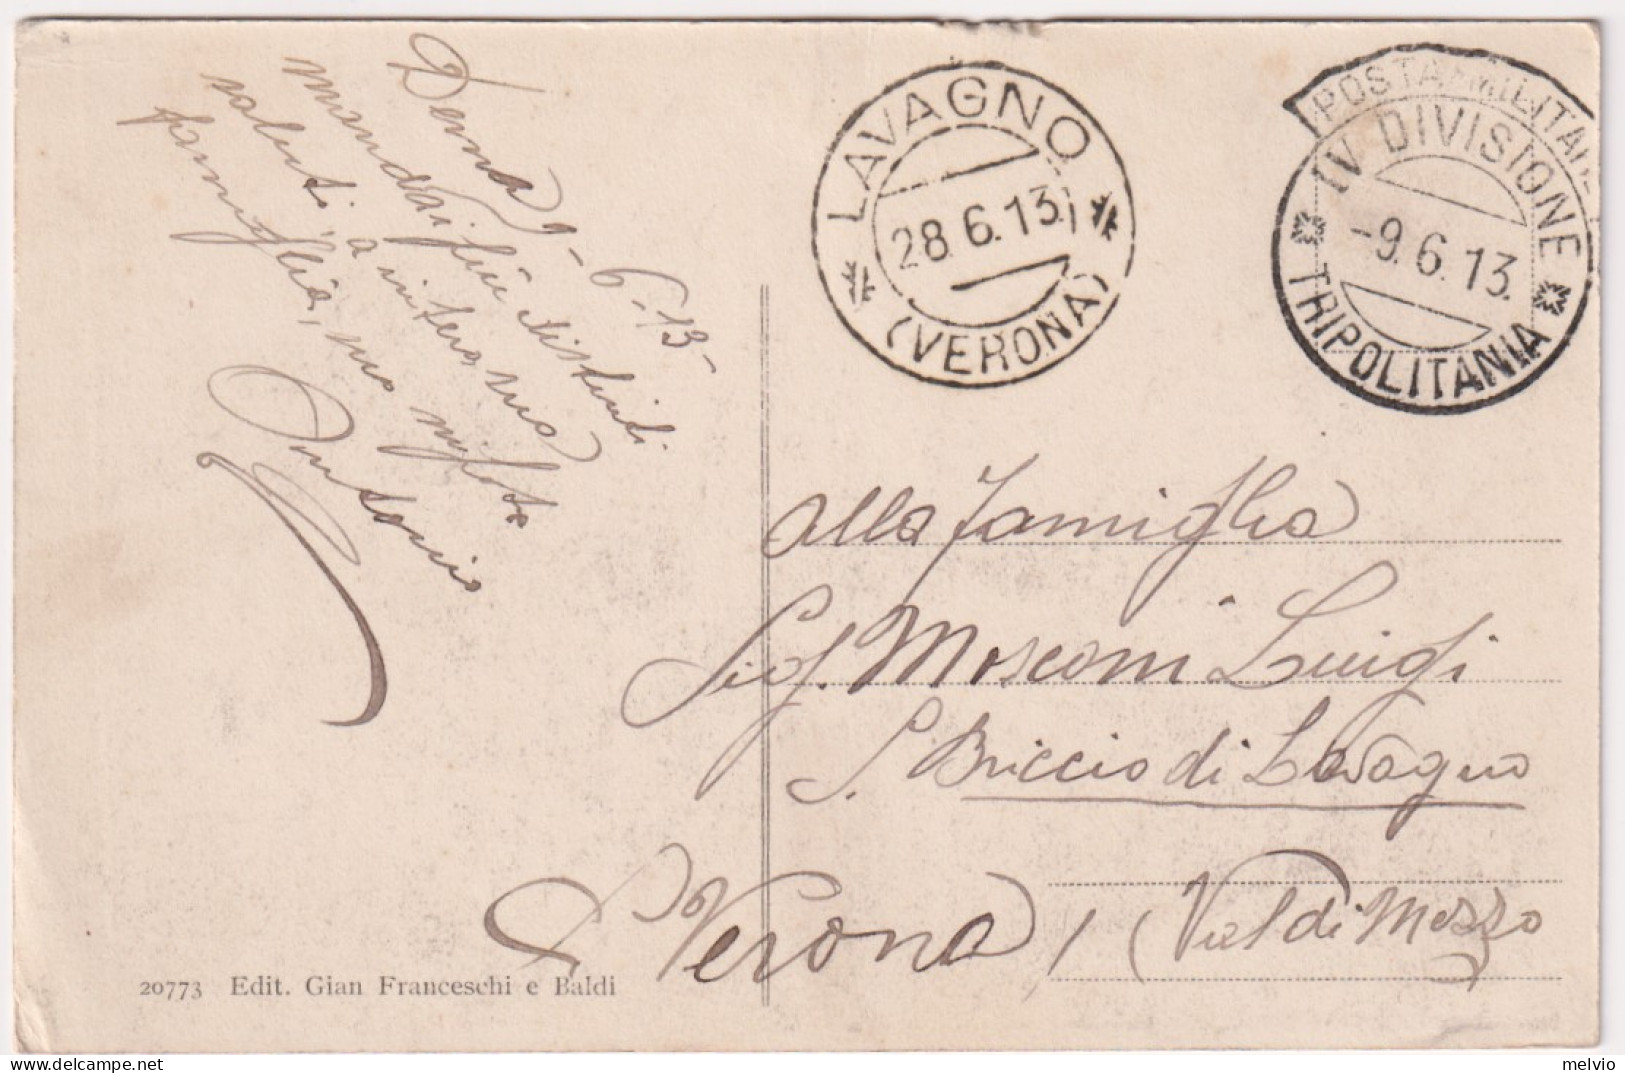 Derna 9-6-13-
mandai più distinti
saluti a intera sua
famiglia, suo nipote
Antonio
LAVAGNO
28.6.13
(VERONA)
POSTA MILITARE
IV DIVISIONE
-9.6.13.
TRIPOLITANIA
alla Famiglia
Sig. Mosconi Luigi
S. Briccio di Lavagno
Verona, (Val di Mezzo
20773 Edit. Gian Franceschi e Baldi
melvio